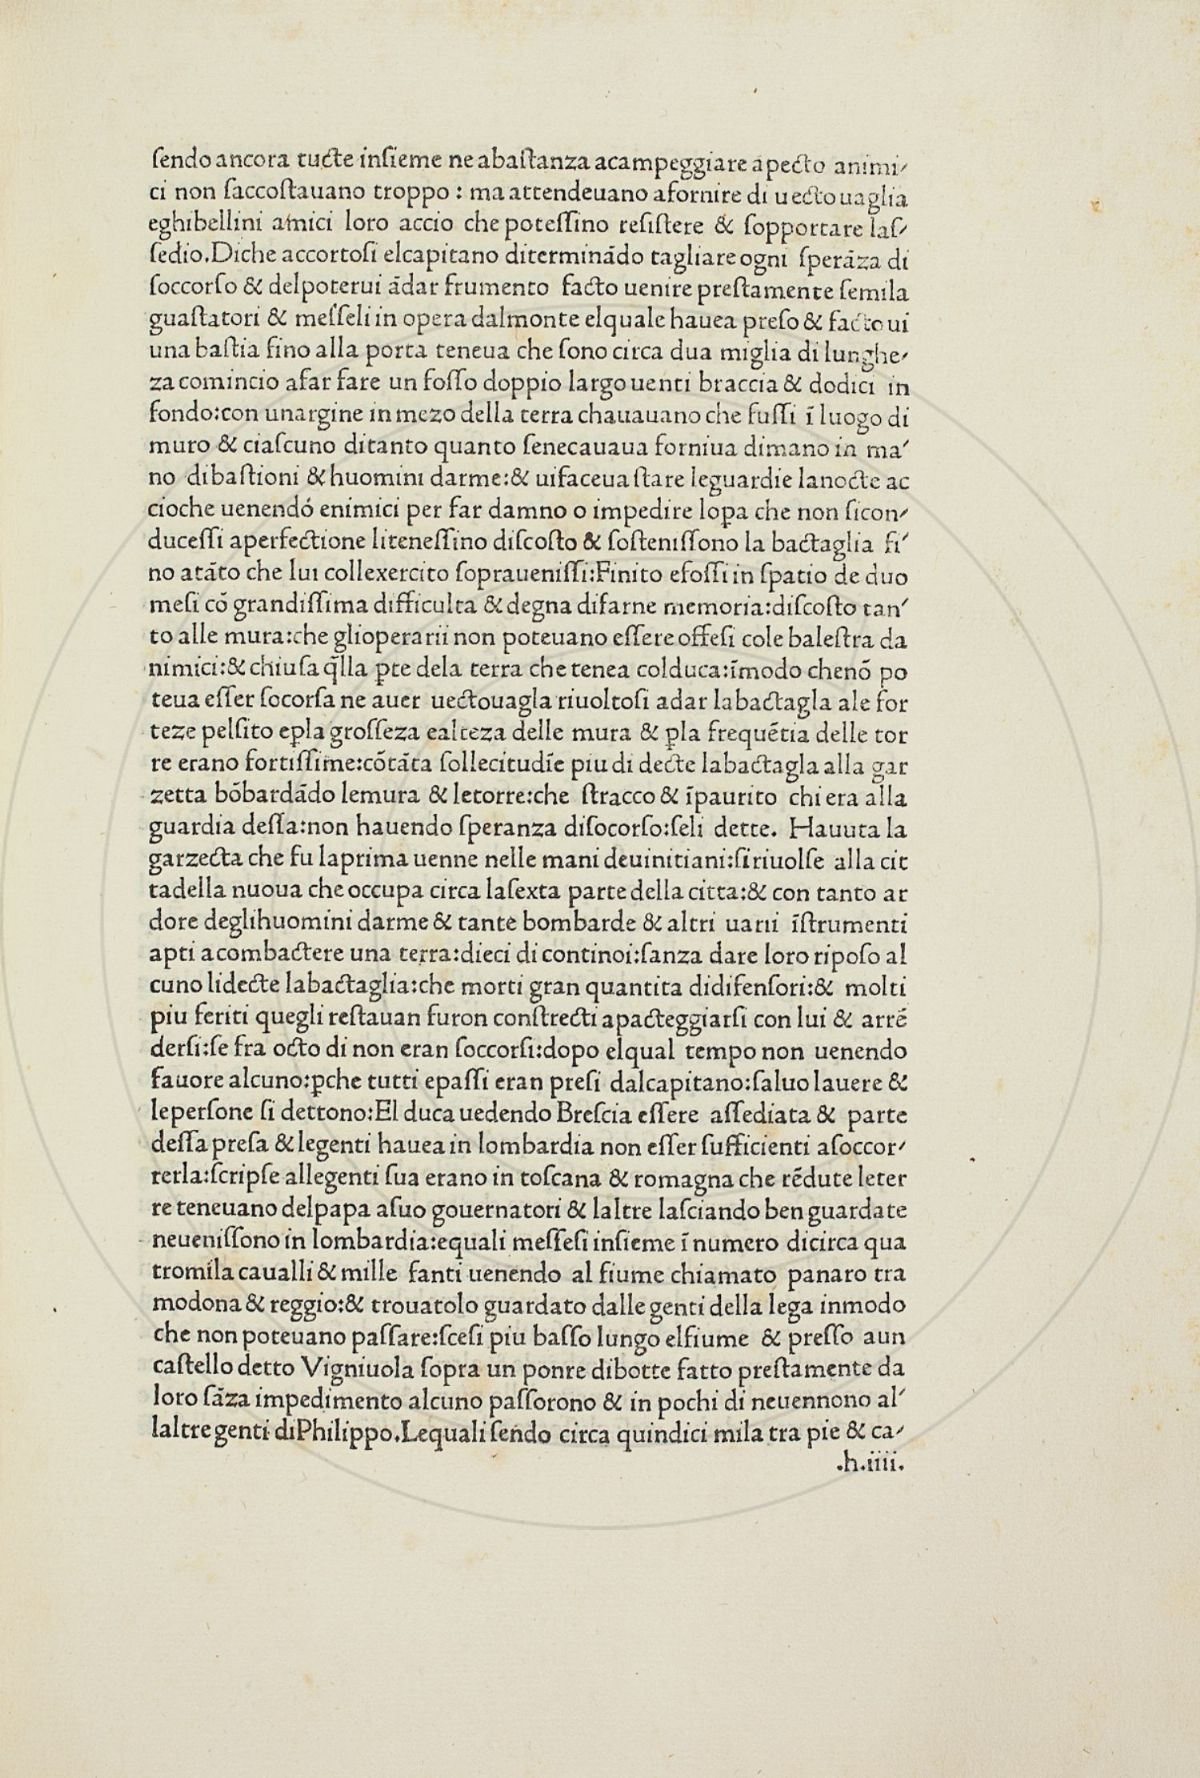 ſendo ancora tucte inſieme ne abaſtanza acampeggiare apecto animi⸗
ci non ſaccoſtauano troppo : ma attendeuano afornire di uectouaglia
eghibellini amici loro accio che poteſſino reſiſtere & ſopportare laſ⸗
ſedio.Diche accortoſi elcapitano diterminãdo tagliare ogni ſperãza di
ſoccorſo & delpoterui ãdar frumento facto uenire preſtamente ſemila
guaſtatori & meſſeli in opera dalmonte elquale hauea preſo & facto ui
una baſtia fino alla porta teneua che ſono circa dua miglia di lunghe⸗
za comincio afar fare un foſſo doppio largo uenti braccia & dodici in
fondo:con unargine in mezo della terra chauauano che fuſſi ĩ luogo di
muro & ciaſcuno ditanto quanto ſenecauaua forniua dimano in ma⸗
no dibaſtioni & huomini darme:& uifaceua ſtare leguardie lanocte ac
cioche uenendó enimici per far damno o impedire lopa che non ſicon⸗
duceſſi aperfectione liteneſſino diſcoſto & ſoſteniſſono la bactaglia fi⸗
no atãto che lui collexercito ſopraueniſſi:Finito efoſſi in ſpatio de duo
meſi cõ grandiſſima difficulta & degna difarne memoria:diſcoſto tan⸗
to alle mura:che glioperarii non poteuano eſſere offeſi cole baleſtra da
nimici:& chiuſa q̃lla ꝑte dela terra che tenea colduca:ĩmodo chenõ po
teua eſſer ſocorſa ne auer uectouagla riuoltoſi adar labactagla ale for
teze pelſito eꝑla groſſeza ealteza delle mura & ꝑla frequẽtia delle tor
re erano fortiſſime:cõtãta ſollecitudĩe piu di decte labactagla alla gar
zetta bõbardãdo lemura & letorre:che ſtracco & ĩpaurito chi era alla
guardia deſſa:non hauendo ſperanza diſocorſo:ſeli dette. Hauuta la
garzecta che fu laprima uenne nelle mani deuinitiani:ſiriuolſe alla cit
tadella nuoua che occupa circa laſexta parte della citta:& con tanto ar
dore deglihuomini darme & tante bombarde & altri uarii ĩſtrumenti
apti acombactere una terra:dieci di continoi:ſanza dare loro ripoſo al
cuno lidecte labactaglia:che morti gran quantita didifenſori:& molti
piu feriti quegli reſtauan furon conſtrecti apacteggiarſi con lui & arrẽ
derſi:ſe fra octo di non eran ſoccorſi:dopo elqual tempo non uenendo
fauore alcuno:ꝑche tutti epaſſi eran preſi dalcapitano:ſaluo lauere &
leperſone ſi dettono:El duca uedendo Breſcia eſſere aſſediata & parte
deſſa preſa & legenti hauea in lombardia non eſſer ſufficienti aſoccor⸗
rerla:ſcripſe allegenti ſua erano in toſcana & romagna che rẽdute leter
re teneuano delpapa aſuo gouernatori & laltre laſciando ben guardate
neueniſſono in lombardia:equali meſſeſi inſieme ĩ numero dicirca qua
tromila caualli & mille fanti uenendo al fiume chiamato panaro tra
modona & reggio:& trouatolo guardato dalle genti della lega inmodo
che non poteuano paſſare:ſceſi piu baſſo lungo elfiume & preſſo aun
caſtello detto Vigniuola ſopra un ponre dibotte fatto preſtamente da
loro ſãza impedimento alcuno paſſorono & in pochi di neuennono al⸗
laltre genti diPhilippo.Lequali ſendo circa quindici mila tra pie & ca⸗
.h.iiii.